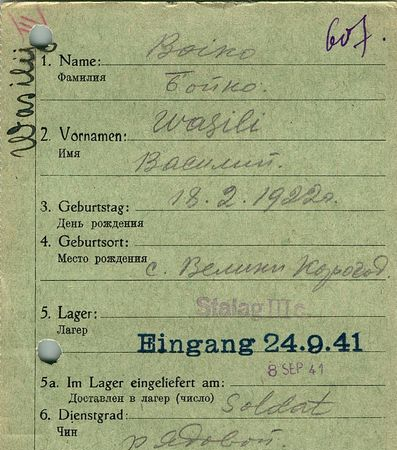 III
607.
Wasilij
1. Name: Boiko
Фамилия Бойко.
2. Vornamen: Wasili
Имя Василий.
3. Geburtstag: 18.2.1922г.
День рождения
4. Geburtsort:
Место рождения с. Велики Корогод.
5. Lager: Stalag III
Лагер
Eingang 24.9.41
8 SEP 41
5a. Im Lager eingeliefert am:
Доставлен в лагер (число)
6. Dienstgrad: Soldat
Чин рядовой.